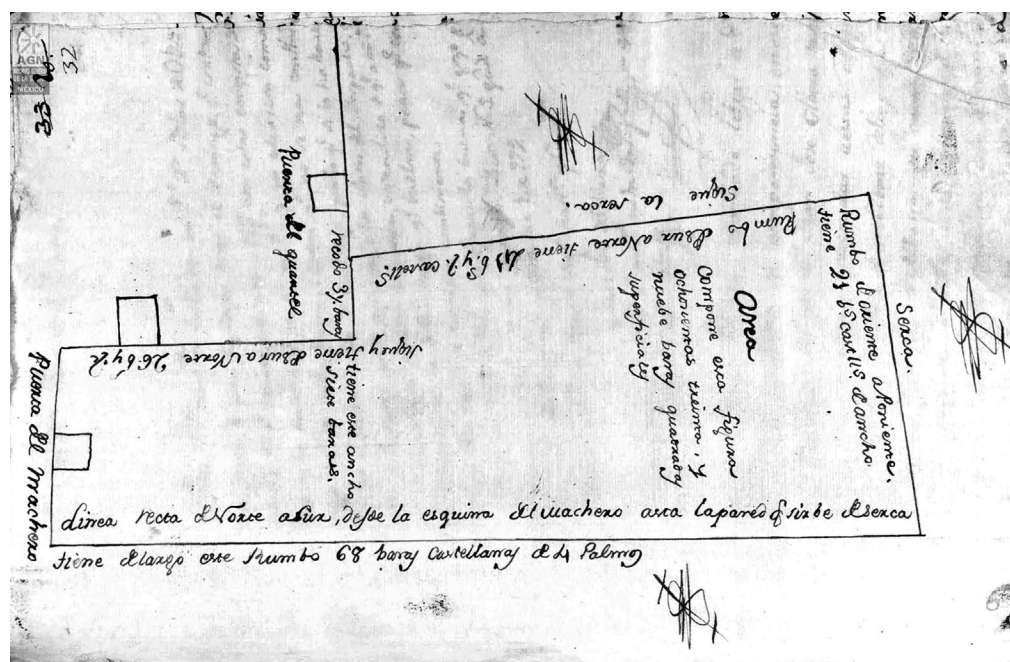 AGN
MÉXICO
32
Puerta del quartel
recodo 3½ baras
Sigue la serca.
Rumbo de sur a Norte tiene 43 bs. y ½ castells.
Rumbo de oriente a Poniente.
tiene 23 bs. castells. de ancho
Serca.
Area
Compone esta figura
ochosientas treinta, y
nuebe baras quatradas
superficiales
Sigue y tiene de sur a Norte 26 bs. y ½
tiene este ancho
siete baras.
Puerta del Machero
Linea recta de Norte a sur, desde la esquina del machero asta la pared q sirbe de serca
tiene de largo este Rumbo 68 baras Castellanas de 4 Palmos